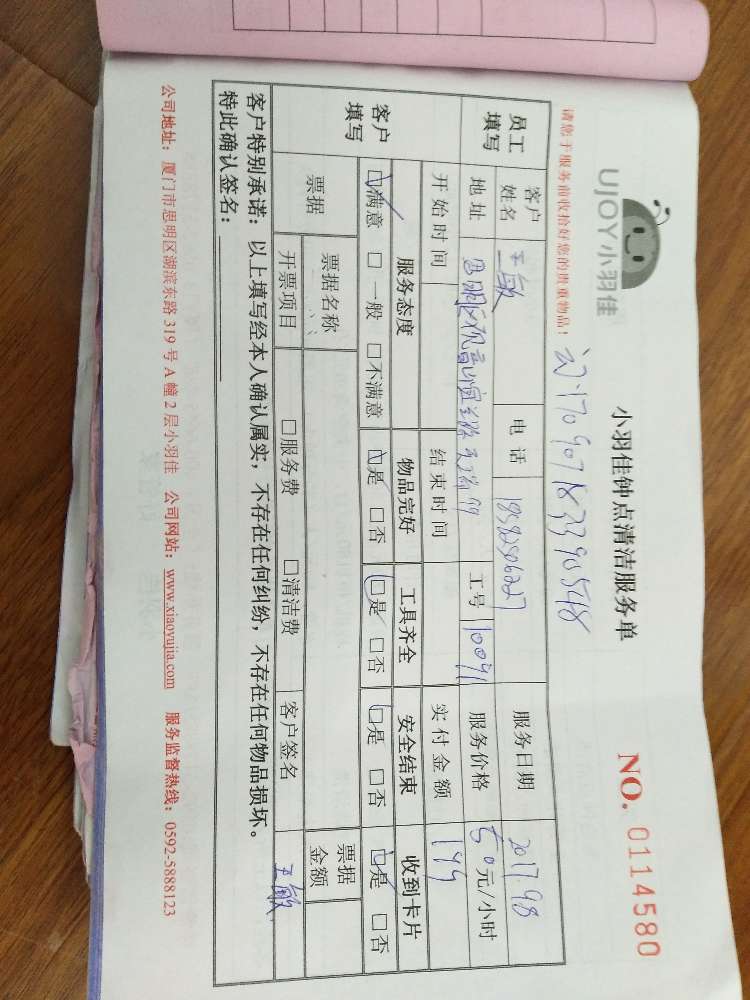 UJOY小羽佳
小羽佳钟点清洁服务单
NO. 0114580
请您于服务前收拾好您的贵重物品！
员工填写
客户姓名 王敏 电话 18592506227 服务日期 2017.9.8
地址 工号 10091 服务价格 50元/小时
开始时间 结束时间 实付金额 149
客户填写
服务态度 物品完好 工具齐全 安全结束 收到卡片
☑满意 □一般 □不满意 ☑是 □否 ☑是 □否 ☑是 □否 ☑是 □否
票据 票据名称 票据金额
开票项目 □服务费 □清洁费 客户签名 王敏
客户特别承诺：以上填写经本人确认属实，不存在任何纠纷，不存在任何物品损坏。
特此确认签名：
公司地址：厦门市思明区湖滨东路 319 号 A 幢 2 层小羽佳 公司网站：www.xiaoyujia.com 服务监督热线：0592-5888123